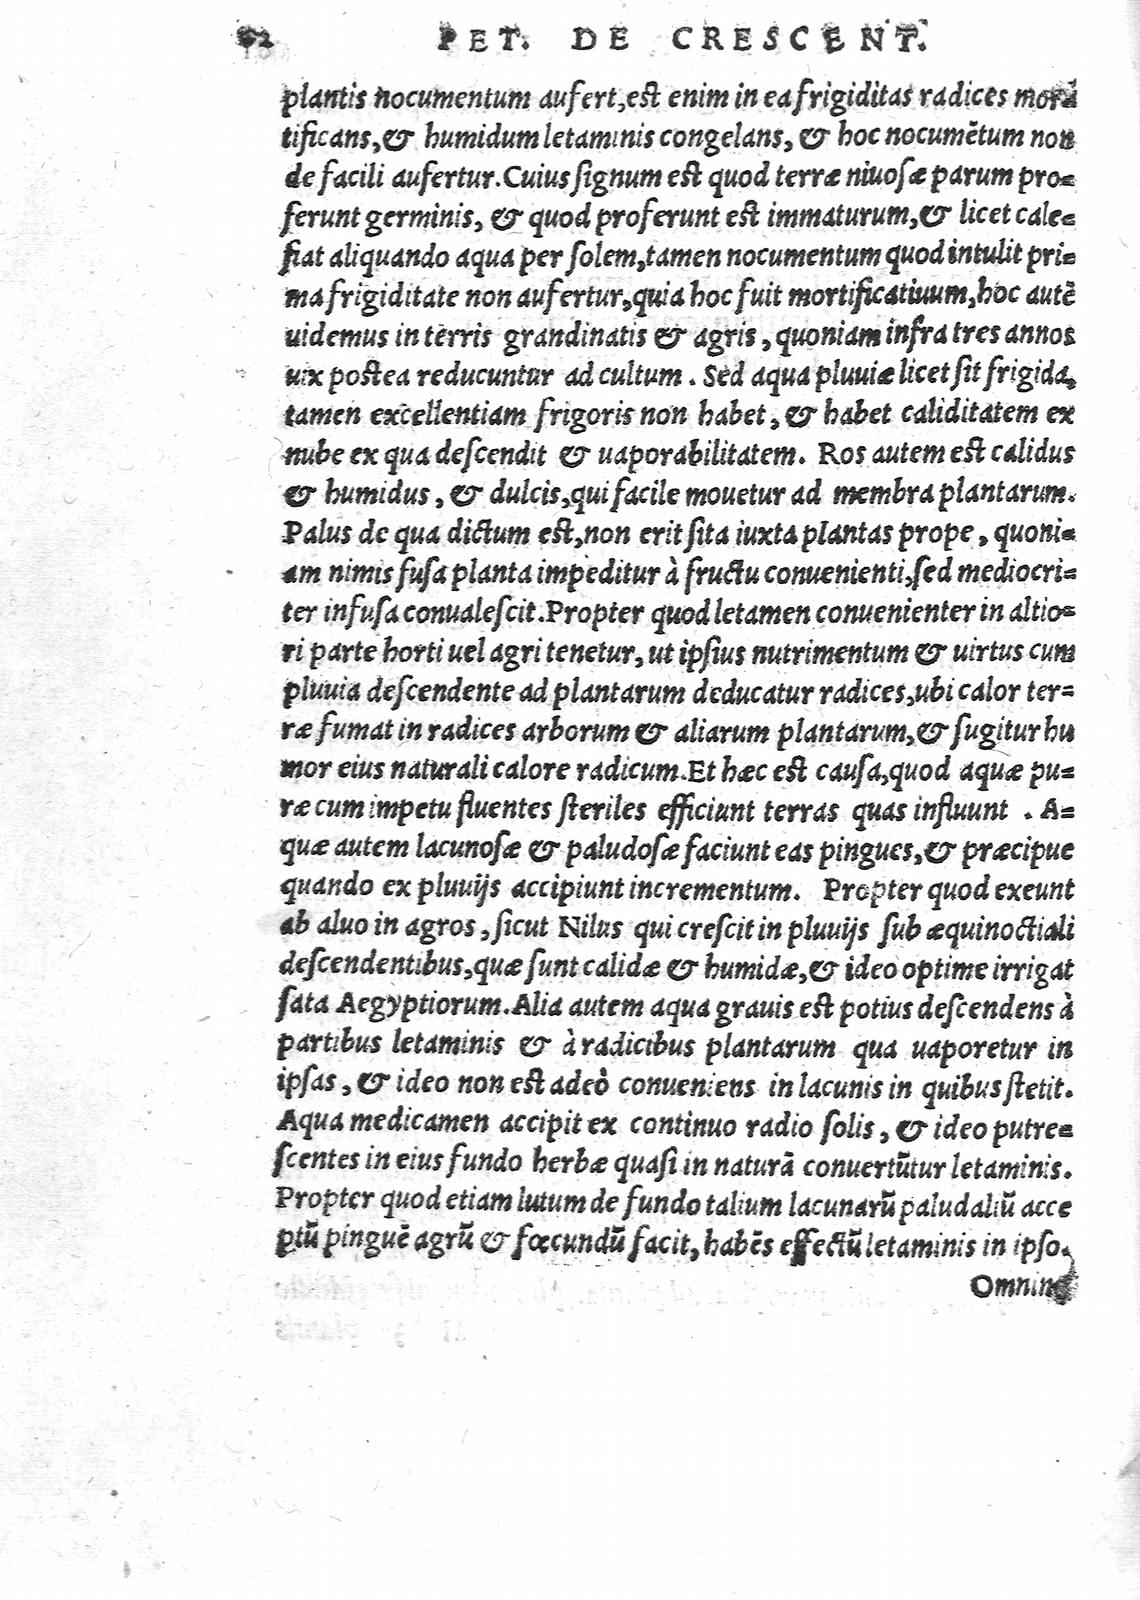 62 PET. DE CRESCENT.
plantis nocumentum aufert,est enim in ea frigiditas radices mor=
tificans,& humidum letaminis congelans, & hoc nocumētum non
de facili aufertur.Cuius ſignum est quod terræ niuoſæ parum pro=
ferunt germinis, & quod proferunt est immaturum,& licet cale=
fiat aliquando aqua per ſolem,tamen nocumentum quod intulit pri=
ma frigiditate non aufertur,quia hoc fuit mortificatiuum,hoc autē
uidemus in terris grandinatis & agris, quoniam infra tres annos
uix postea reducuntur ad cultum. Sed aqua pluuiæ licet ſit frigida,
tamen excellentiam frigoris non habet, & habet caliditatem ex
nube ex qua deſcendit & uaporabilitatem. Ros autem est calidus
& humidus, & dulcis,qui facile mouetur ad membra plantarum.
Palus de qua dictum est,non erit ſita iuxta plantas prope, quoni=
am nimis fuſa planta impeditur à fructu conuenienti,ſed mediocri=
ter infuſa conualeſcit.Propter quod letamen conuenienter in altio=
ri parte horti uel agri tenetur, ut ipſius nutrimentum & uirtus cum
pluuia deſcendente ad plantarum deducatur radices,ubi calor ter=
ræ fumat in radices arborum & aliarum plantarum,& ſugitur hu
mor eius naturali calore radicum.Et hæc est cauſa,quod aquæ pu=
ræ cum impetu fluentes ſteriles efficiunt terras quas influunt . A=
quæ autem lacunoſæ & paludoſæ faciunt eas pingues,& præcipue
quando ex pluuijs accipiunt incrementum. Propter quod exeunt
ab aluo in agros, ſicut Nilus qui creſcit in pluuijs ſub æquinoctiali
deſcendentibus,quæ ſunt calidæ & humidæ,& ideo optime irrigat
ſata Aegyptiorum.Alia autem aqua grauis est potius deſcendens à
partibus letaminis & à radicibus plantarum qua uaporetur in
ipſas, & ideo non est adeò conueniens in lacunis in quibus ſtetit.
Aqua medicamen accipit ex continuo radio ſolis, & ideo putre=
ſcentes in eius fundo herbæ quaſi in naturā conuertūtur letaminis.
Propter quod etiam lutum de fundo talium lacunarū paludaliū acce
ptū pinguē agrū & fœcundū facit, habēs effectū letaminis in ipſo.
Omnino